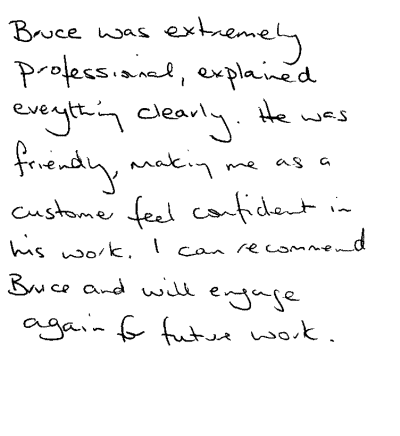 Bruce was extremely
professional, explained
everything clearly. He was
friendly, making me as a
customer feel confident in
his work. I can recommend
Bruce and will engage
again for future work.